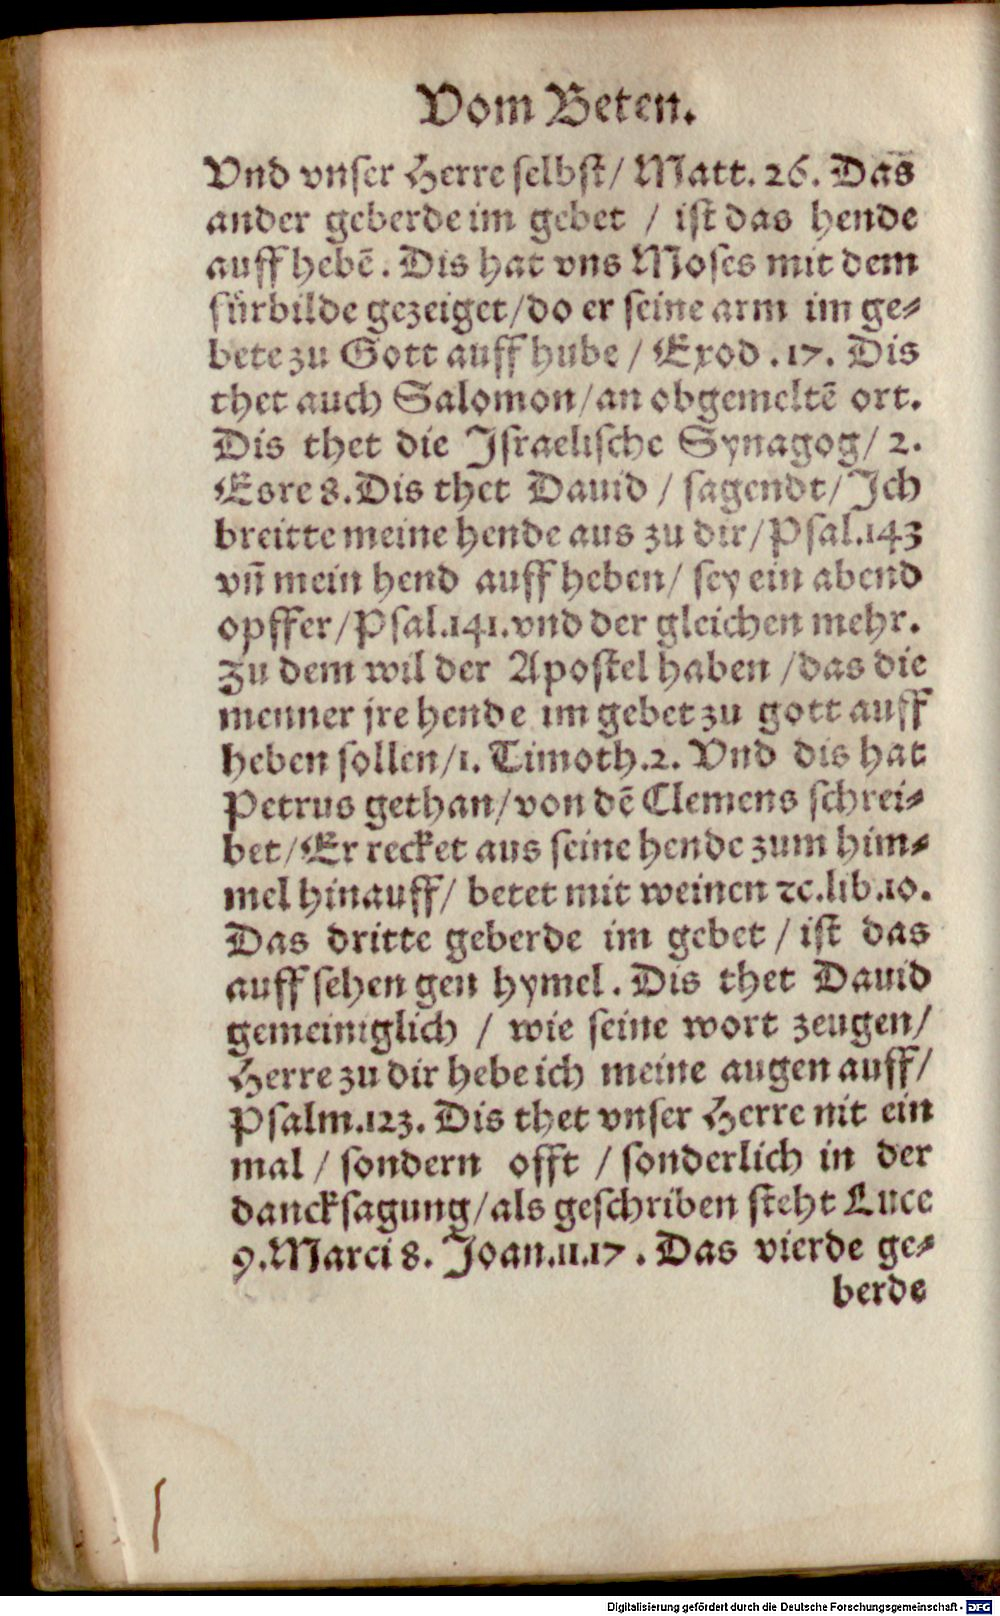 Vom Beten.
Vnd vnser Herre selbst/ Matt. 26. Das
ander geberde im gebet / ist das hende
auff hebē. Dis hat vns Moses mit dem
fürbilde gezeiget/do er seine arm im ge-
bete zu Gott auff hube / Exod .17. Dis
thet auch Salomon/an obgemeltē ort.
Dis thet die Israelische Synagog/ 2.
Esre 8. Dis thet Dauid / sagendt/ Ich
breitte meine hende aus zu dir/Psal.143
vñ mein hend auff heben/ sey ein abend
opffer/Psal.141.vnd der gleichen mehr.
Zu dem wil der Apostel haben /das die
menner jre hende im gebet zu gott auff
heben sollen/1. Timoth.2. Vnd dis hat
Petrus gethan/von dē Clemens schrei-
bet/Er recket aus seine hende zum him-
mel hinauff/ betet mit weinen ꝛc.lib.10.
Das dritte geberde im gebet / ist das
auff sehen gen hymel. Dis thet Dauid
gemeiniglich / wie seine wort zeugen/
Herre zu dir hebe ich meine augen auff/
Psalm.123. Dis thet vnser Herre nit ein
mal / sondern offt / sonderlich in der
dancksagung/als geschriben steht Luce
9.Marci 8. Joan.11.17 . Das vierde ge-
berde
Digitalisierung gefördert durch die Deutsche Forschungsgemeinschaft - DFG